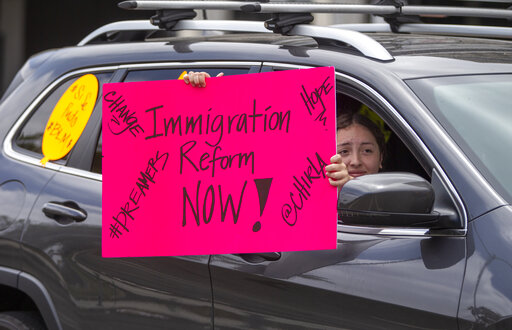 CHANGE
HOPE
Immigration
Reform
NOW!
#DREAMERS
@CHIRLA